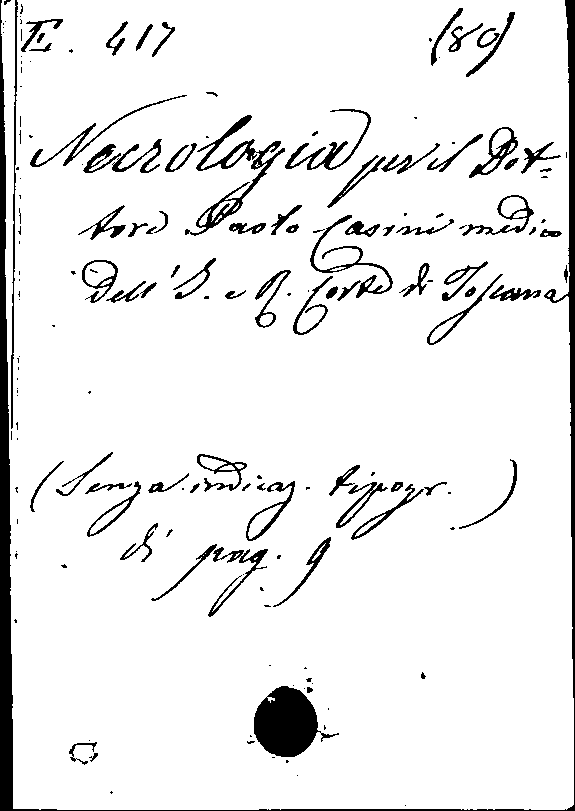 E. 417 (89)
Necrologia per il Dot=
tore Paolo Casini medico
dell' I. e R. Corte di Toscana
(Senza indicaz. tipogr. )
di pag. 9